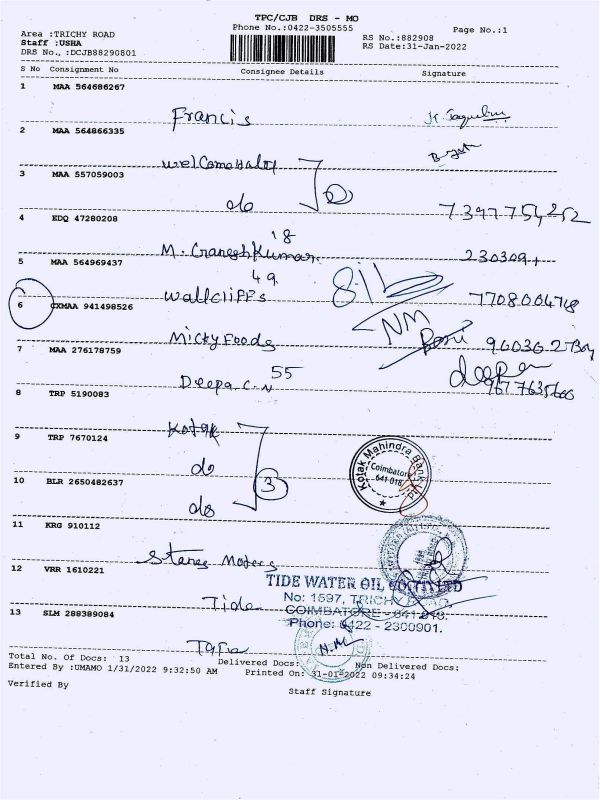 TPC/CJB DRS - MO
Phone No.:0422-3505555
Page No.:1
Area :TRICHY ROAD
Staff :USHA
DRS No., :DCJB88290801
RS No.:882908
RS Date:31-Jan-2022
S No Consignment No Consignee Details Signature
1 MAA 564686267
Francis
2 MAA 564866335
3 MAA 557059003
do 2
4 EDQ 47280208
18
M. Ganesh Kumar
5 MAA 564969437
49
Wallcliffs
6 CXMAA 941498526
NM
Micky Foods
7 MAA 276178759
Deepa C.N 55 Deepa
8 TRP 5190083
Kotak
9 TRP 7670124
do 3
Kotak Mahindra Bank
Coimbatore
641 018
10 BLR 2650482637
do
11 KRG 910112
Stanes Motors
12 VRR 1610221
TIDE WATER OIL
Tide
No: 1597, TRICHY ROAD,
COIMBATORE - 641 018.
13 SLM 288389084
Phone: 0422 - 2300901.
N.M
Tata
Total No. Of Docs: 13 Delivered Docs: Non Delivered Docs:
Entered By :UMAMO 1/31/2022 9:32:50 AM Printed On: 31-01-2022 09:34:24
Verified By Staff Signature